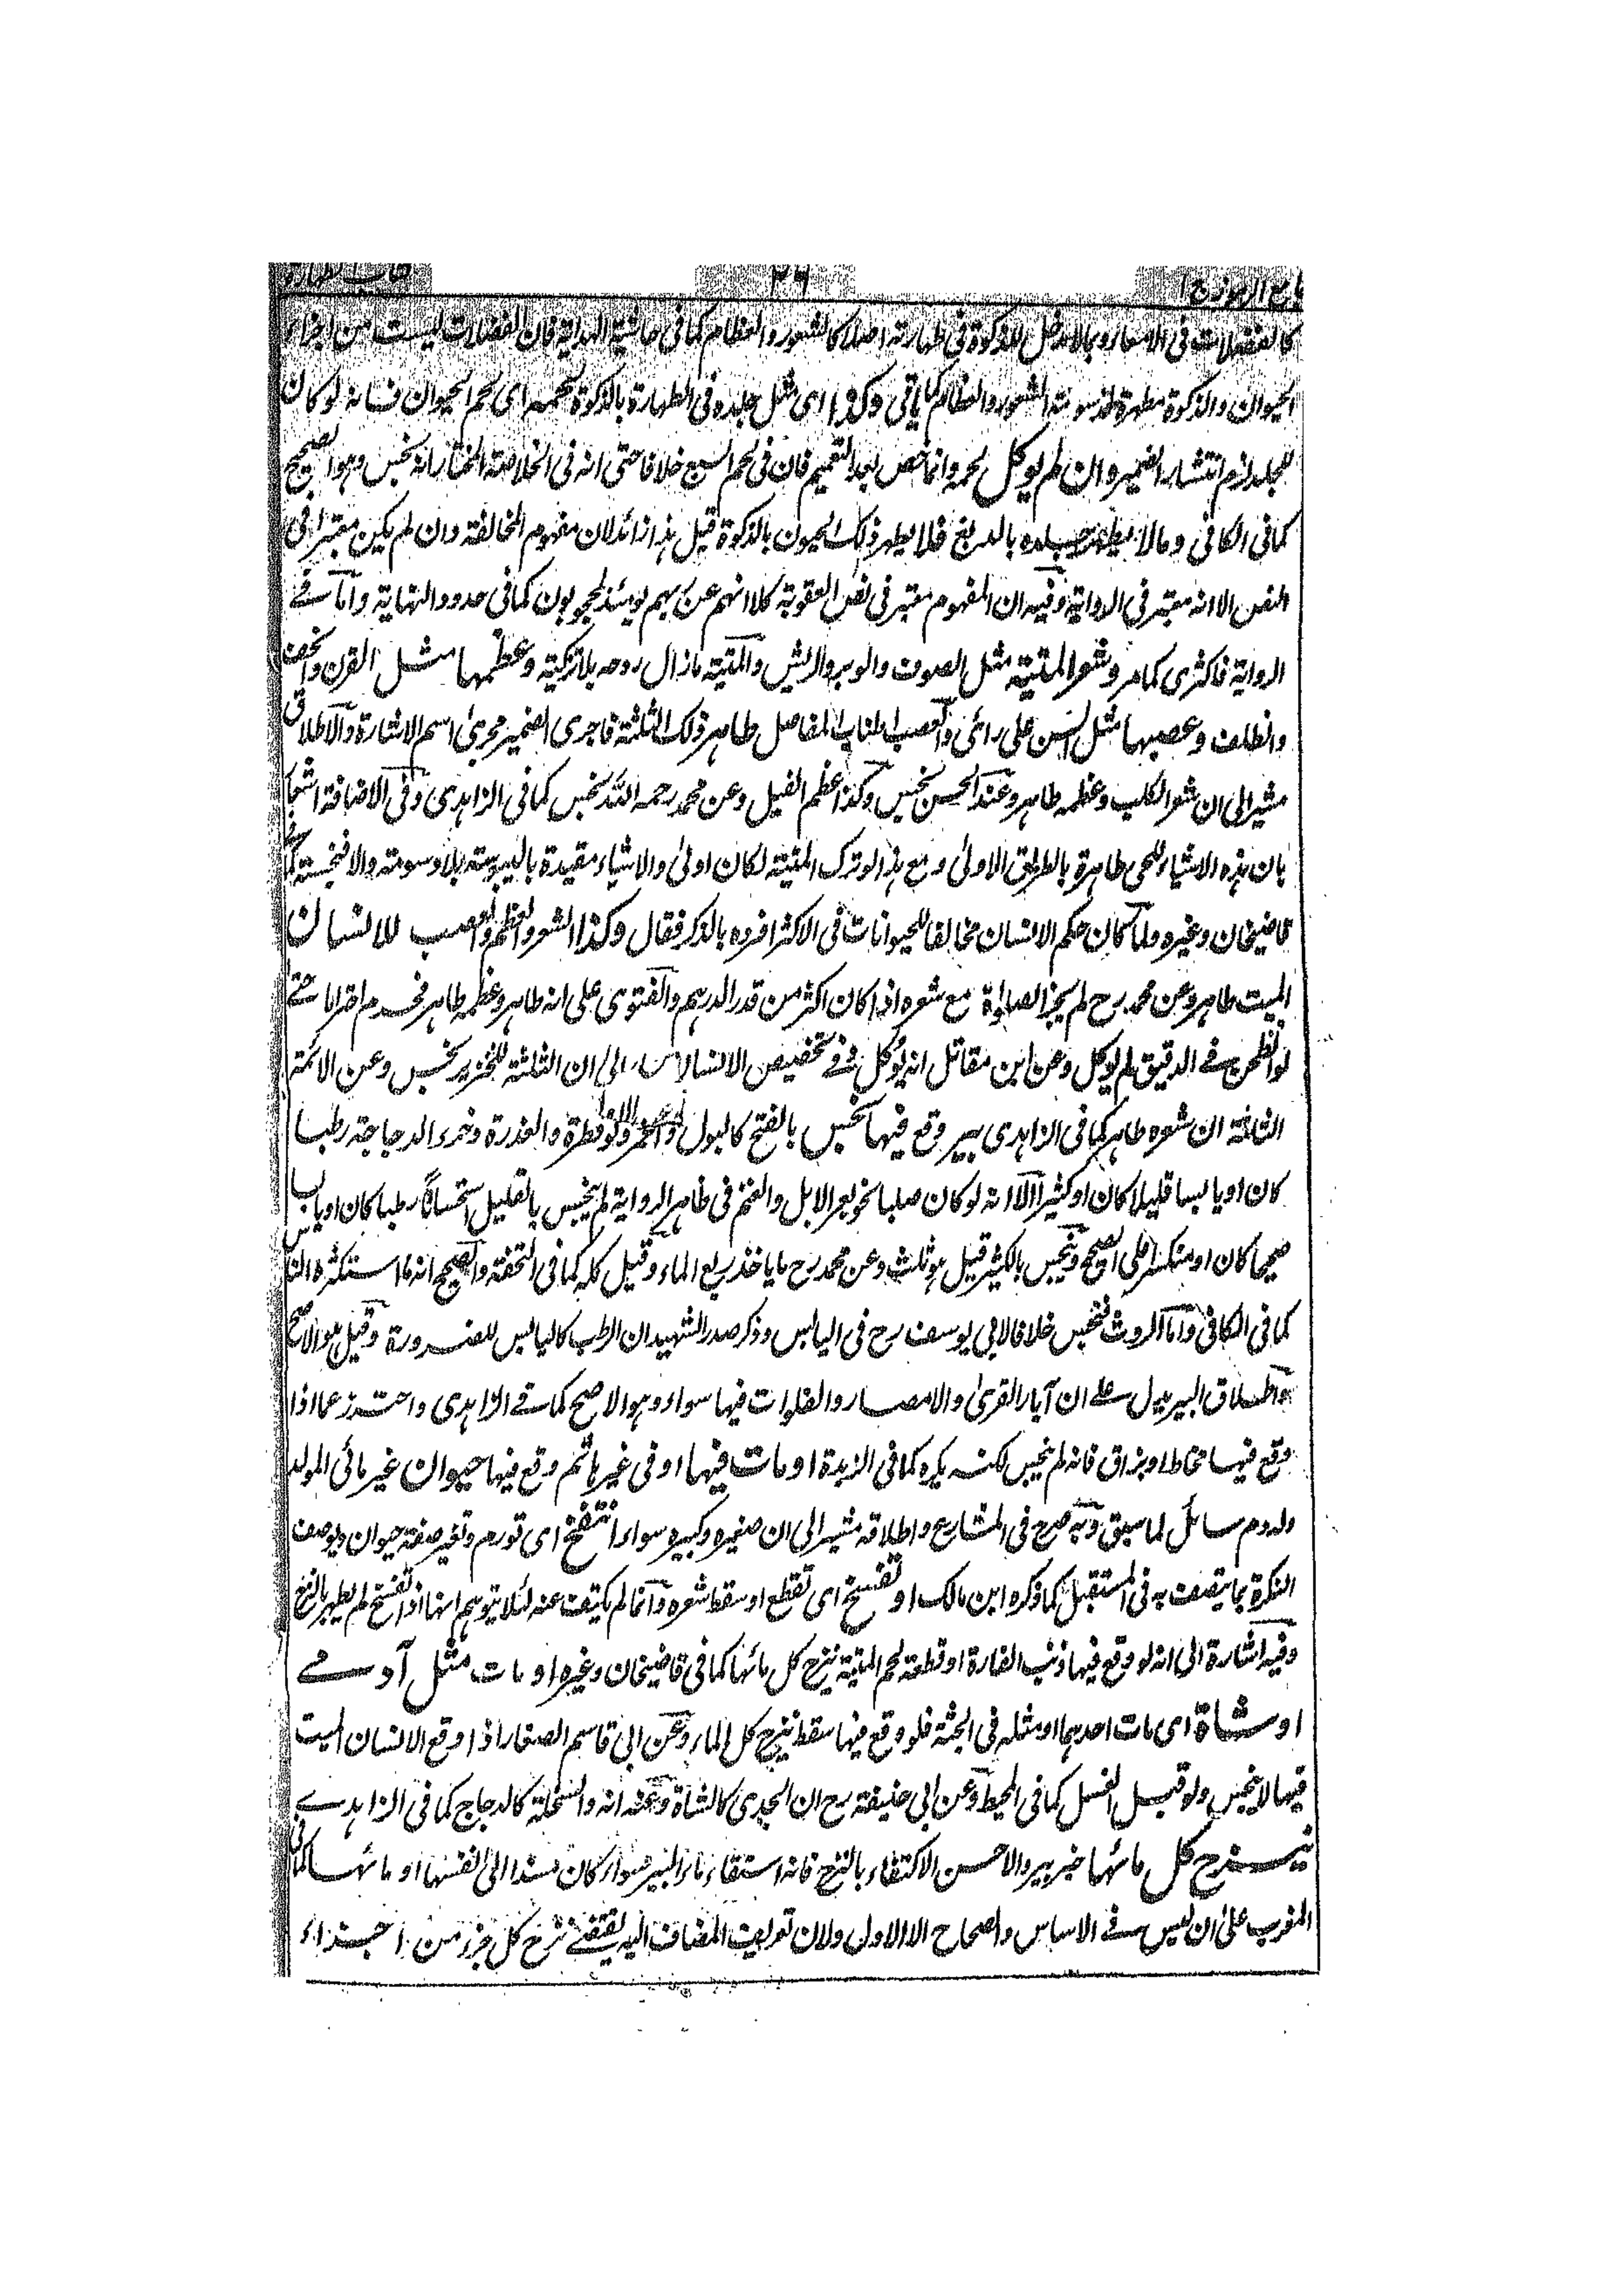 جامع الرموز ج ا ٣٦ كتاب الطهارة
كالفضلات فى الامعاء وبما لا دخل للذكوة فى طهارته اصلا كالشعور والعظام كما فى حاشية الهداية فان الفضلات ليست من اجزاء
الحيوان والذكوة مطهرة لدسومته الشعور والعظام كما ياتى وكذا اى مثل جلده فى الطهارة بالذكوة لحمه اى لحم الحيوان فانه لو كان
للجلد لزم انتشار الضمير وان لم يوكل لحمه وانما خص بعد التعميم فان فى لحم السبع خلافا حتى انه فى الخلاصة المختار انه نجس وهو الصحيح
كما فى الكافى وما لا يطهر جلده بالدبغ فلا يطهر ذلك الحيون بالذكوة قيل هذا زائد لان مفهوم المخالفة وان لم يكن معتبرا فى
النص الا انه معتبر فى الرواية وفيه ان المفهوم معتبر فى نص العقوبة كلا انهم عن ربهم يومئذ لمحجوبون كما فى حدود النهاية واما فے
الرواية فاكثرى كما مر وشعر الميتة مثل الصوف والوبر والريش والميتة ما زال روحه بلا تزكية وعظمها مثل القرن والخف
والظلف وعصبها مثل السن على رائى والعصب اطناب المفاصل طاهر ذلك الثلثة فاجرى الضمير مجرى اسم الاشارة والاطلاق
مشير الى ان شعر الكلب وعظمه طاهر وعند الحسن نجس وكذا عظم الفيل وعن محمد رحمه الله نجس كما فى الزاهدى وفى الاضافة اشعار
بان هذه الاشياء للحى طاهرة بالطريق الاولى ومع هذا لو ترك الميتة لكان اولى والاشياء مقيدة باليبوسة بلا دسومته والا فنجسته كما فى
قاضيخان وغيره ولما كان حكم الانسان مخالفا للحيوانات فى الاكثر افرده بالذكر فقال وكذا الشعر والعظم والعصب للانسان
الميت طاهر وعن محمد رح لم يجز الصلوة مع شعره اذا كان اكثر من قدر الدرهم والفتوى على انه طاهر وعظمه طاهر فحرم احتراما حتے
لو انطحن فے الدقيق لم يوكل وعن ابن مقاتل انه يؤكل وفے تخصيص الانسان الى ان الثلثة للخنزير نجس وعن الائمة
الثلثة ان شعره طاهر كما فى الزاهدى بير وقع فيها نجس بالفتح كالبول والخمر ولو قطرة والعذرة وخرء الدجاجة رطبا
كان او يابسا قليلا كان او كثيرا الا انه لو كان صلبا نحو بعر الابل والغنم فى ظاهر الرواية لم ينجس بالقليل استحسانا رطبا كان او يابسا
صحيحا كان او منكسرا على الصحيح وينجس بالكثير قيل هو ثلث وعن محمد رح ما ياخذ ربع الماء وقيل كله كما فى التحفة والصحيح انه ما استكثره الناس
كما فى الكافى واما الروث فنجس خلافا لابى يوسف رح فى اليابس وذكر صدر الشهيد ان الرطب كاليابس للضرورة وقيل هو الاصح
واطلاق البير يدل علے ان آبار القرى والامصار والفلوات فيها سواء وهو الاصح كما فے الزاهدى واحترز عما اذا
وقع فيها مخاط او بزاق فانه لم ينجس لكنه يكره كما فى الزبدة او مات فيها او فى غيرها ثم وقع فيها حيوان غير مائى المولد
وله دم سائل لما سبق وبه صرح فى المشارع واطلاقه مشير الى ان صغيره وكبيره سواء انتفخ اى تورم وتغير صفة حيوان ويوصف
النكرة بما يتصف به فى المستقبل كما ذكره ابن مالك او تفسخ اى تقطع او سقط شعره وانما لم يكتف عنه لئلا يتوهم انها اذا تفسخ لم يطهر بالنزح
وفيه اشارة الى انه لو وقع فيها ذنب الفارة او قطعة لحم الميتة ينزح كل مائها كما فى قاضيخان وغيره او مات مثل آدمے
او شاة اى مات احدهما او مثله فى الجثة فلو وقع فيها سقط ينزح كل الماء وعن ابى قاسم الصفار اذا وقع الانسان الميت
فيها لا ينجس ولو قبل الغسل كما فى المحيط وعن ابى حنيفة رح ان الجدى كالشاة وعنه انه والسخلة كالدجاج كما فى الزاهدے
ينزح كل مائها خبر بير والاحسن الاكتفاء بالنزح فانه استقاء ماء البير سواء كان مسندا الى نفسها او مائها كما فى
المغرب على ان ليس فے الاساس والصحاح الا الاول ولان تعريف المضاف اليه يقتضے نزح كل جزء من اجزاء